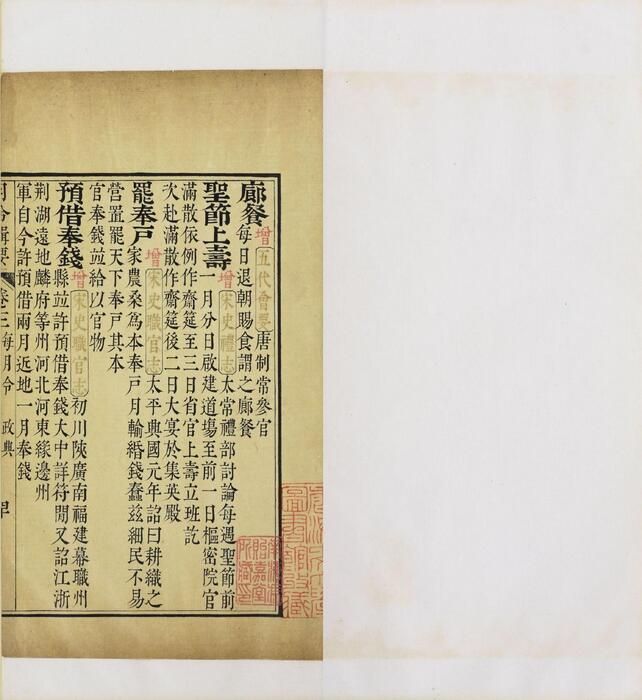 廊餐增五代會要唐制常參官
每日退朝賜食謂之廊餐
聖節上壽增宋史禮志太常禮部討論每遇聖節前
一月分日啟建道場至前一日樞密院官
滿散依例作齋筵至三日省官上壽立班訖
次赴滿散作齋筵後二日大宴於集英殿
罷奉戶增宋史職官志太平興國元年詔曰耕織之
家農桑爲本奉戶月輸緡錢蠶兹細民不易
營置罷天下奉戶其本
官奉錢竝給以官物
預借奉錢增宋史職官志初川陝廣南福建幕職州
縣竝許預借奉錢大中祥符閒又詔江浙
荆湖遠地麟府等州河北河東緣邊州
軍自今許預借兩月近地一月奉錢
月令輯要 卷三 每月令 政典